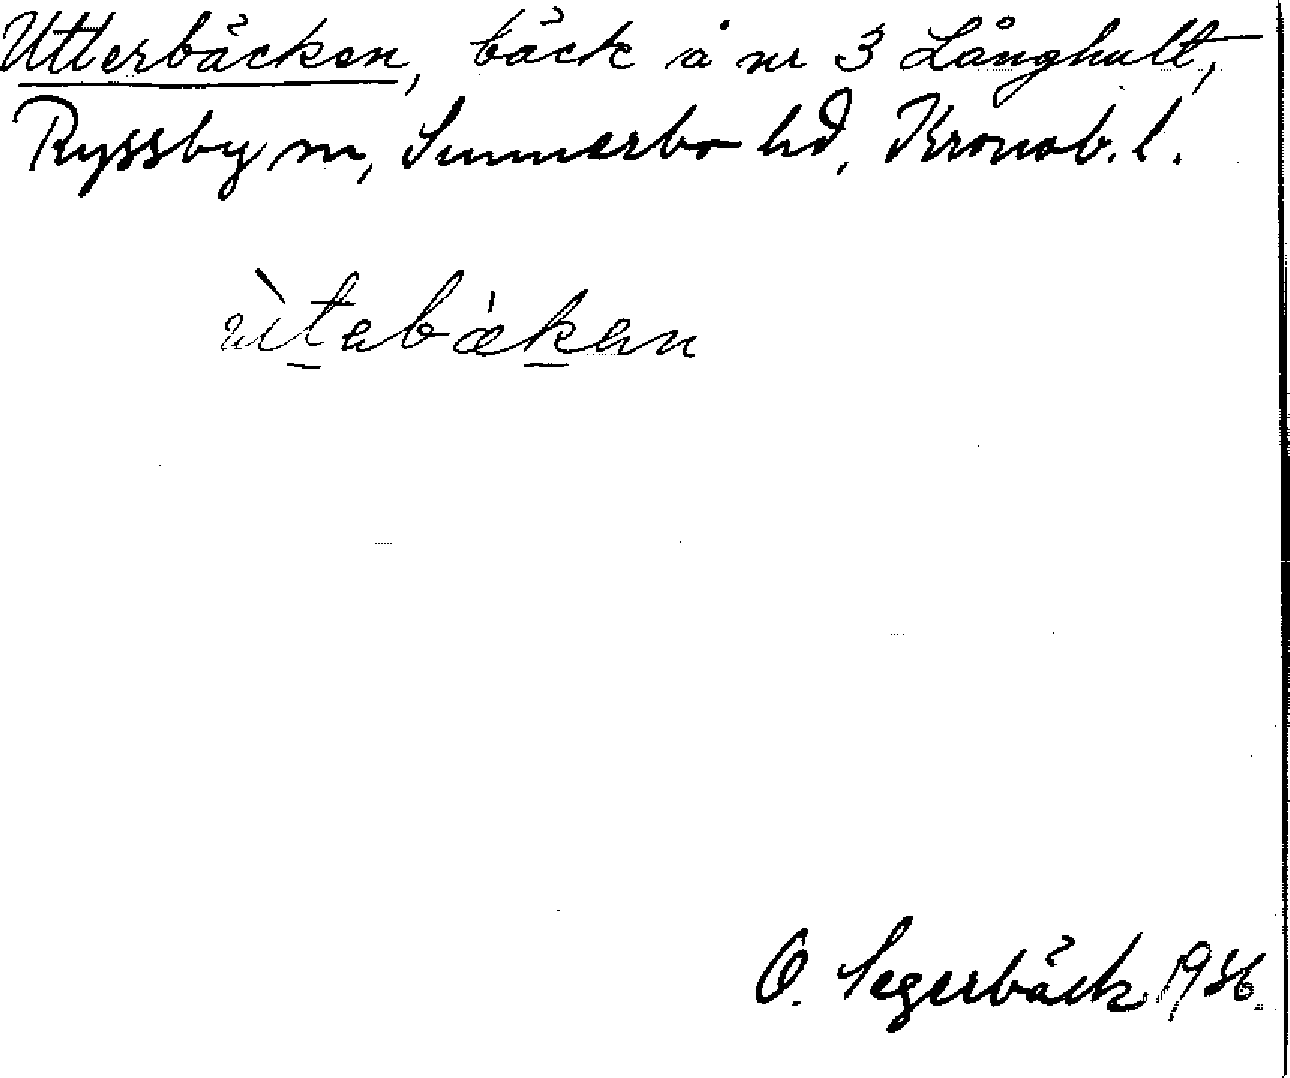 Utterbäcken, bäck å nr 3 Långhult,
Ryssby sn, Sunnerbo hd, Kronob. l.
ùtebǽken
O. Segerbäck